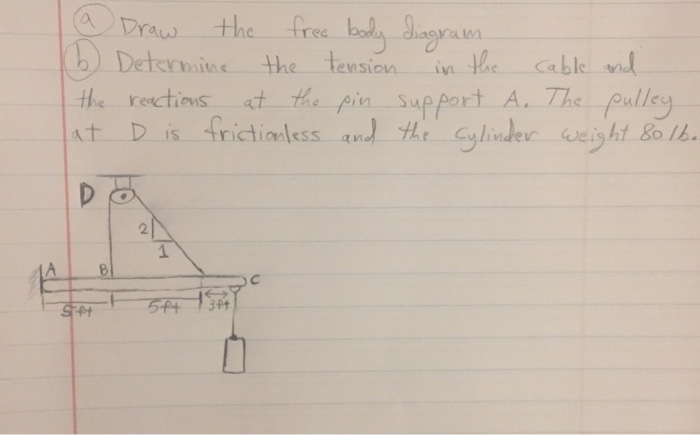 (a) Draw the free body diagram
(b) Determine the tension in the cable and
the reactions at the pin support A. The pulley
at D is frictionless and the cylinder weight 80 lb.
D
2
1
A B C
5ft 5ft 3ft